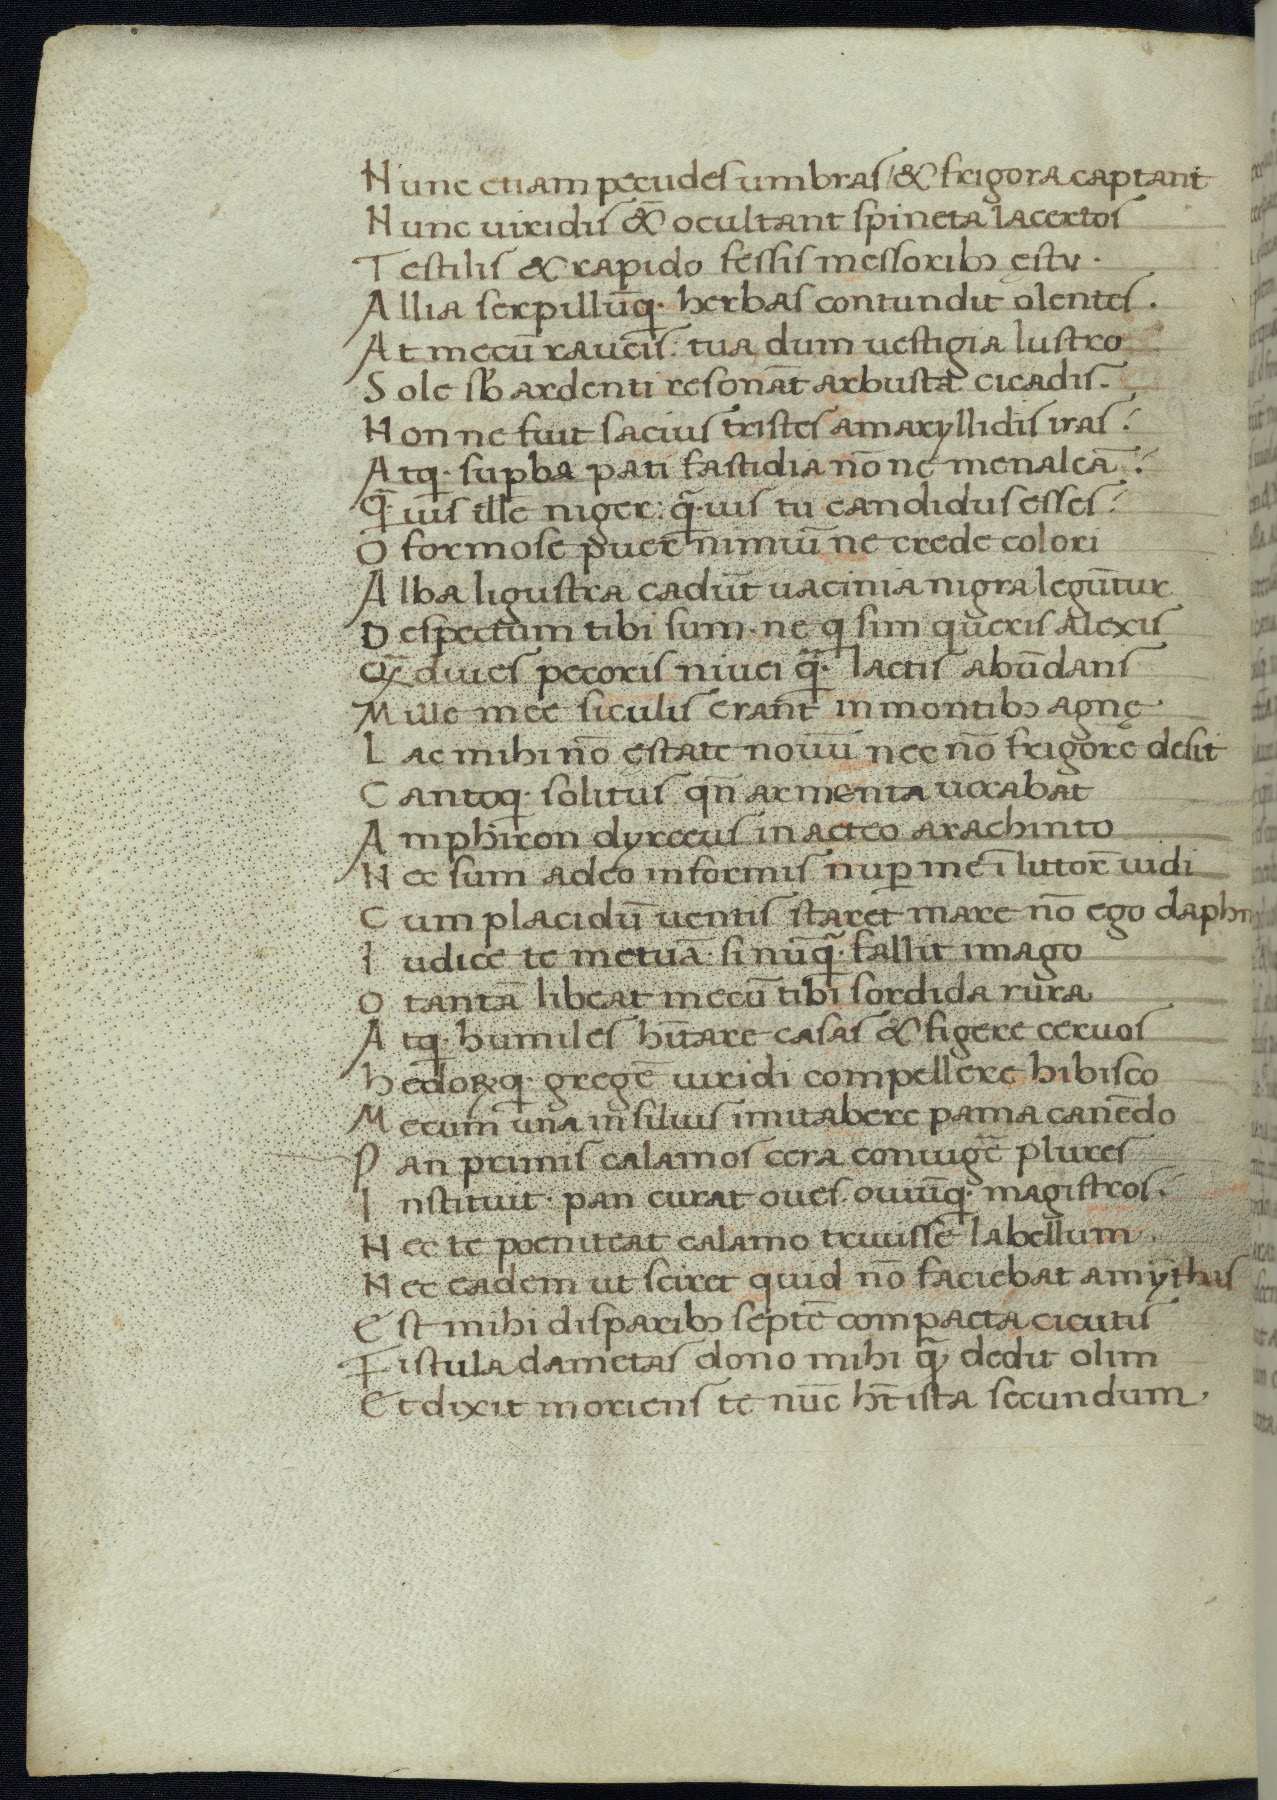 Nunc etiam pecudes umbras & frigora captant
Nunc uiridis &̄ ocultant spineta lacertos
Testilis & rapido fessis messorib; ęstu.
Allia serpillūq;· herbas contundit olentes.
At mecū raucis: tua dum uestigia lustro
Sole sƀ ardenti resonāt arbusta cicadis.
Nonne fuit sacius tristes amaryllidis iras?
Atq;· suꝑba pati fastidia nōne menalcā?
Q̄·uis ille niger: q̄·uis tu candidus esses?
O formose puer nimiū ne crede colori
Alba ligustra cadūt uacinia nigra legūtur
Despectum tibi sum· ne q sim queris Alexis
Q̄ diues pecoris niuei q̄· lactis abūdans
Mille mee siculis erant in montib; agnę·
Lac mihi nō ęstate nouū nec nō frigore desit
Cantoq;· solitus qn̄ armenta uocabat
Amphiron dyrceus in acteo arachinto
Nec sum adeo informis nuꝑ me ī lutor̄ uidi
Cum placidū uentis staret mare nō ego daphn
Iudice te metuā· si nūq̄· fallit imago
O tantā libeat mecū tibi sordida rura
Atq;· humiles hītare casas & figere ceruos
Hedoꝝq;· gregē uiridi compellere hibisco
Mecum una in siluis imitabere pama canēdo
Pan primis calamos cera coniugē plures
Instituit· pan curat oues ouiūq;· magistros.
Nec te poeniteat calamo triuisse labellum.
Nec eadem ut sciret quid nō faciebat amythis
Est mihi disparib; septē compacta cicutis
Fistula dametas dono mihi q̄ dedit olim
Et dixit moriens te nūc ht̄ ista secundum.